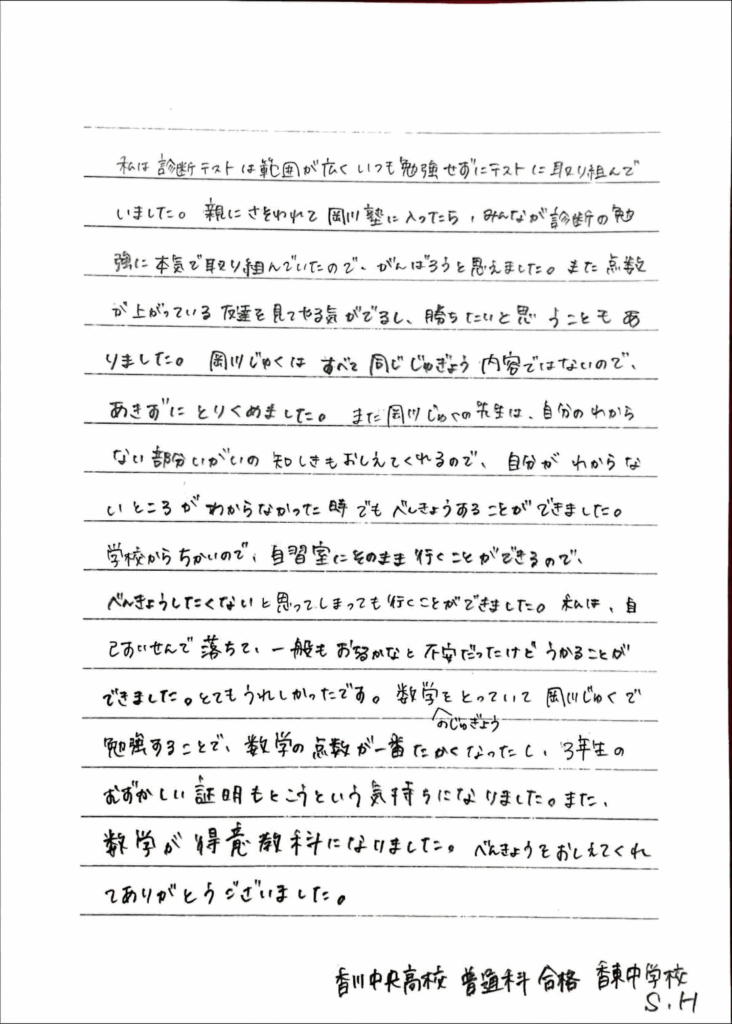 私は診断テストは範囲が広くいつも勉強せずにテストに取り組んで
いました。親にさそわれて岡川塾に入ったら、みんなが診断の勉
強に本気で取り組んでいたので、がんばろうと思えました。また点数
が上がっている友達を見てやる気がでるし、勝ちたいと思うこともあ
りました。岡川じゅくはすべて同じじゅぎょう内容ではないので、
あきずにとりくめました。また岡川じゅくの先生は、自分のわから
ない部分いがいの知しきもおしえてくれるので、自分がわからな
いところがわからなかった時でもべんきょうすることができました。
学校からちかいので、自習室にそのまま行くことができるので、
べんきょうしたくないと思ってしまっても行くことができました。私は、自
己すいせんで落ちて、一般もおちるかなと不安だったけどうかることが
できました。とてもうれしかったです。数学のじゅぎょうをとっていて岡川じゅくで
勉強することで、数学の点数が一番たかくなったし、3年生の
むずかしい証明もとこうという気持ちになりました。また、
数学が得意教科になりました。べんきょうをおしえてくれ
てありがとうございました。
香川中央高校 普通科 合格 香東中学校
S.H